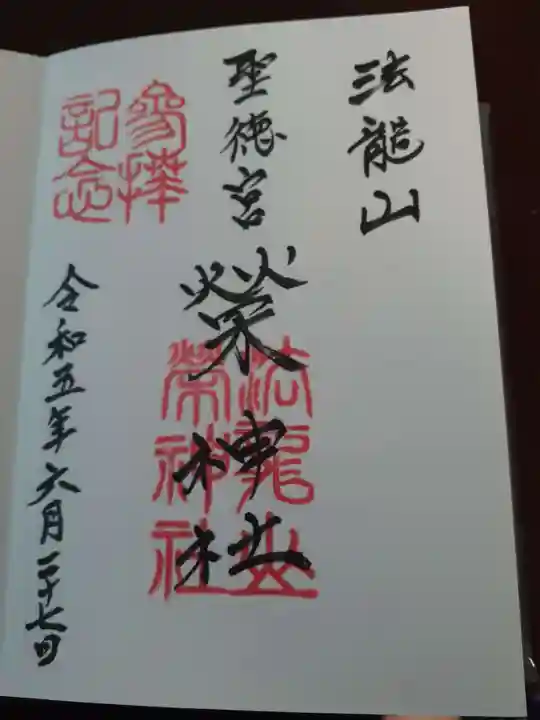 法龍山
聖徳宮
榮神社
参拝記念
法龍山榮神社
令和五年六月二十七日